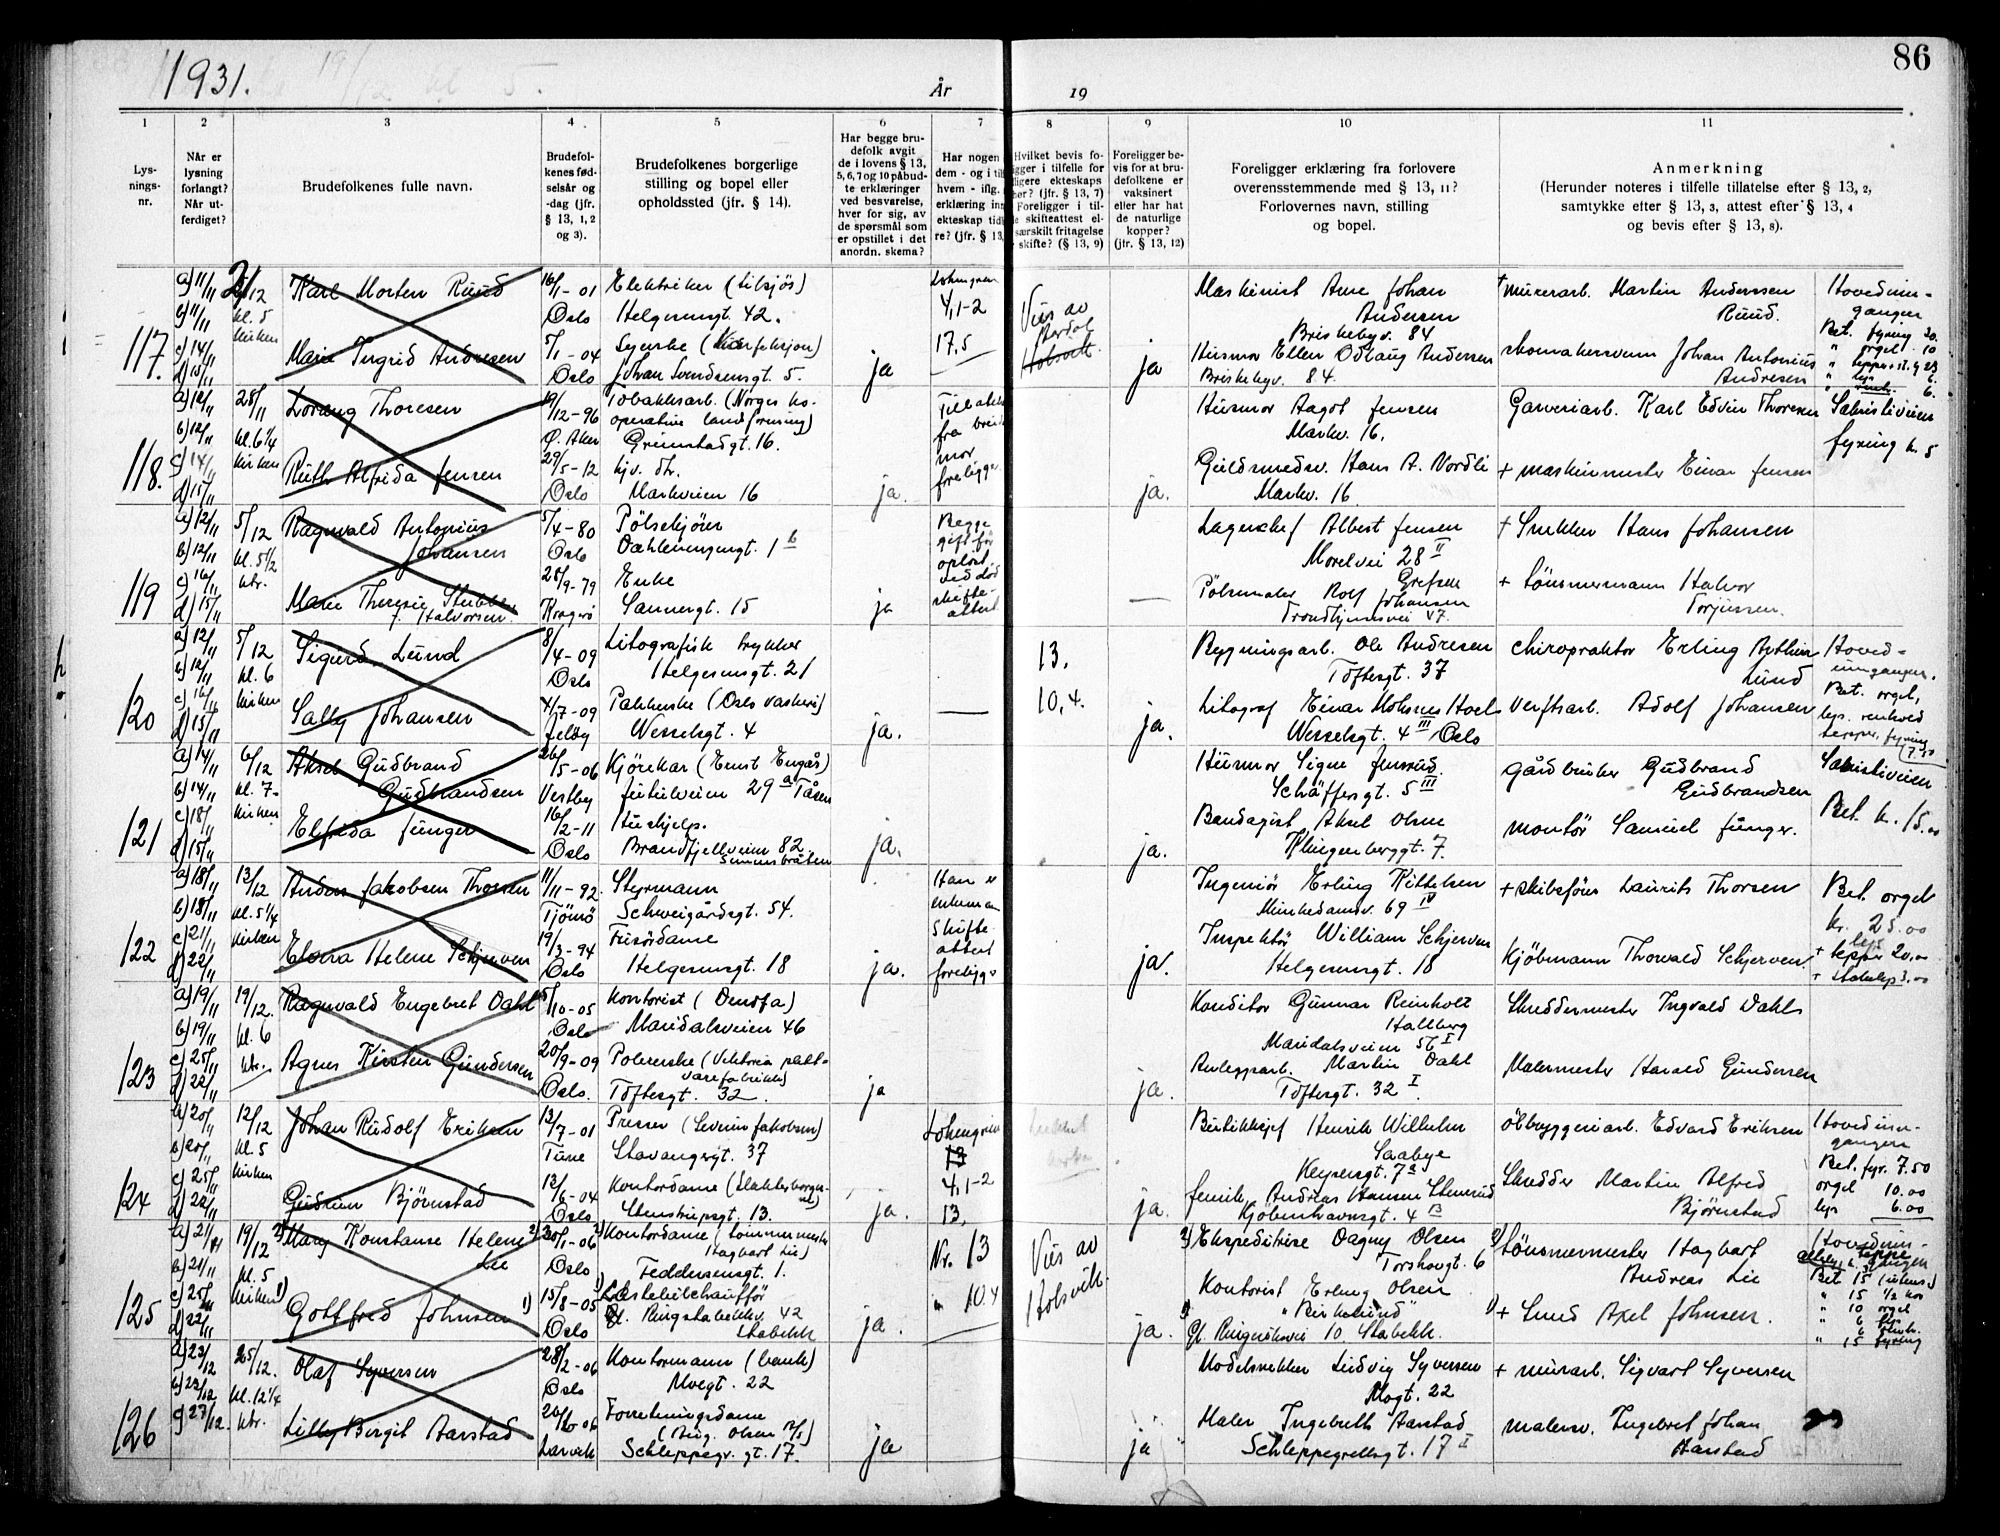 1931.
År
19
86
1
2
3
4
5
6
7
8
9
10
11
Lys-
nings-
nr.
Når er
lysning
forlangt?
Når ut-
ferdiget?
Brudefolkenes fulle navn.
Brudefol-
kenes fød-
selsår og
-dag (jfr.
§ 13, 1, 2
og 3).
Brudefolkenes borgerlige
stilling og bopel eller
opholdssted (jfr. § 14).
Har begge bru-
defolk avgit
de i lovens § 13,
5, 6, 7 og 10 påbud-
te erklæringer
ved besvarelse,
hver for sig, av
de spørsmål som
er opstillet i det
anordn. skema?
Har nogen
dem - og i til
hvem - iflg.
erklæring inn
ekteskap tid
re? (jfr. § 13,
Hvilket bevis fo-
gger i tilfelle for
ligere ekteskaps
her? (jfr. § 13, 7)
Foreligger i til-
skifteattest el-
særskilt fritagelse
skifte? (§ 13, 9)
Foreligger be-
vis for at bru-
defolkene er
vaksinert
eller har hat
de naturlige
kopper?
(jfr. § 13, 12)
Foreligger erklæring fra forlovere
overensstemmende med § 13, 11?
Forlovernes navn, stilling
og bopel.
Anmerkning
(Herunder noteres i tilfelle tillatelse efter § 13, 2,
samtykke efter § 13, 3, attest efter § 13, 4
og bevis efter § 13, 8).
117.
a) 11/11
b) 11/11
c) 14/11
d) 15/11
kl. 5
kirken
Karl Morten Ruud
16/1-01
Oslo
Elektriker
Helgesensgt. 42.
Marie Ingrid Andresen
5/1-04
Oslo
Syerske
Johan Svendsensgt. 5.
ja
4,1-2
17,5
Vies av
Holsvik.
ja
Maskinist Arne Johan
Andersen
Briskebyv. 84
Husmor Ellen Odlaug Andersen
Briskebyv. 84.
+ murerarb. Martin Anderssen
Ruud.
skomakersvenn Johan Antonius
Andresen
Hovedinn-
gangen
Bet. fyring 20.
" orgel 10
118.
a) 12/11
b) 12/11
c) 14/11
d) 15/11
28/11
kl. 6 1/4
kirken
Thoresen
19/12-96
Ø. Aker
Tobakksarb. (Norges ko-
operative landsforening)
Grimstadgt. 16.
Ruth Alfrida Jensen
29/5-12
Oslo
hjv. dtr.
Markveien 16
ja.
fra
mor
foreligger
ja.
Husmor Aagot Jensen
Markv. 16.
Gullsmedsv. Hans A. Nordli
Markv. 16
Garveriarb. Karl Edvin Thoresen
+ maskinmester Einar Jensen
Sakristiveien
fyring k. 5
119
a) 12/11
b) 12/11
c) 16/11
d) 15/11
5/12
kl. 5 1/2
Ragnvald Antonius
Johansen
5/4-80
Oslo
Pölsekjöver
Dahlenengengt. 1 b
Marie Theresie Stubbe
f. Halvorsen.
28/9-79
Kragerø
Enke
Sannergt. 15
ja
Begge
gift før
oplöst
ved död
skifte-
attest
—
Lagerchef Albert Jensen
Morelvei 28 II
Grefsen
Pölsemaker Rolf Johansen
Trondhjemsvei 47.
+ Snekker Hans Johansen
+ Tömmermann Halvor
Torjussen.
120
a) 12/11
b) 12/11
c) 16/11
d) 15/11
5/12
kl. 6
kirken
Sigurd Lund
8/4-09
Oslo
Litografisk trykker
Helgesensgt. 21
Sally Johansen
4/7-09
Jeløy
Pakkerske (Oslo vaskeri)
Wesselsgt. 4
ja.
—
13.
10,4.
ja.
Bygningsarb. Ole Andresen
Toftesgt. 37
Litograf Einar Hoel
Wesselsgt. 4 III Oslo
chiropraktor Erling Arthur
Lund
Verftsarb. Adolf Johansen
Hoved-
inngangen.
Bet. orgel,
lys. renhold
tepper, fyring
121
a) 14/11
b) 14/11
c) 18/11
d) 15/11
6/12
kl. 7-
kirken
Aksel Gudbrand
Gudbrandsen
26/5-06
Vestby
Kjörekar (Ernst Engås)
Jutulveien 29 a Tåsen
Elfrida Junger
16/2-11
Oslo
Hushjelp.
Brandfjellveien 82
Simensbråten
ja.
ja.
Husmor Signe Jensrud
Schäffersgt. 5 III
Bandagist Aksel Olsne
Klingenberggt. 7.
gårdbruker Gudbrand
Gudbrandsen
montör Samuel Junger.
Sakristiveien
Bet. k. 15.00
122
a) 18/11
b) 18/11
c) 21/11
d) 22/11
13/12
kl. 5 1/4
kirken
Anders Jakobsen Thorsen
11/11-92
Tjömö
Styrmann
Schweigårdsgt. 54.
Elvira Helene Schjerven
19/3-94
Oslo
Frisördame
Helgesensgt. 18
ja.
Han er
enkeman
Skifte-
attest
foreligger
ja.
Ingeniör Erling Kittelsen
Munkedamsv. 69 IV
Inspektör William Schjerven
Helgesensgt. 18
+ skibsförer Laurits Thorsen
Kjöbmann Thorvald Schjerven.
Bet. orgel
kr. 25.00
lys
+ tepper 20,00
123
a) 19/11
b) 19/11
c) 25/11
d) 22/11
19/12.
kl. 6
Ragnvald Engebret Dahl
5/10-05
Oslo
Kontorist
Maridalsveien 46
Agnes Kirsten Gundersen
20/9-09
Oslo.
Polererske (Viktoria platt-
varefabrikk)
Toftesgt. 32.
ja
ja.
Konditor Gunnar Reinholt
Hallberg
Maridalsveien 56 I
Anleggsarb. Martin Dahl
Toftesgt. 32 I.
Skreddermester Ingvald Dahl
Malermester Harald Gundersen
124
a) 20/11
b) 20/11
c) 25/11
d) 22/11
12/12
kl. 5
kirken
Johan Rudolf Eriksen
13/7-01
Tune
Presser (Severin Jakobsen)
Stavangergt. 37
Gudrun Bjørnstad
13/6-04
Oslo
Kontordame
Stenstrupsgt. 13.
ja.
4,1-2
13,
ja.
Butikksjef Henrik Wilhelm
Saabye
Keysersgt. 7 a
Andreas Hansen Stenerud
Kjöbenhavnsgt. 4 B
ölbryggeriarb. Edvard Eriksen
Skredder Martin Alfred
Bjørnstad
Hovedinn-
gangen
Bet. fyr. 7.50
orgel 10.00
lys 6.00
125
a) 21/11
b) 21/11
c) 25/11
d) 22/11
19/12
kl. 5
kirken
2) Mary Konstanse Helene
Lie
2) 30/1-06
Oslo
2) Kontordame (tömmermester
Hagbart Lie)
Feddersensgt. 1.
1) Gottfred Johnsen
1) 15/8-05
Oslo
1) Lastebilchauffør
Gl. Ringstabekkv. 42
Stabekk
ja.
Nr. 13
" 10 4
Vies av
Holsvik.
ja.
2) Ekspeditrise Dagny Olsen
Torshovgt. 6
Kontorist Erling Olsen
"Birkelund"
1) Gl. Ringeriksvei 10. Stabekk.
2) Tömmermester Hagbart
Andreas Lie
1) + Smed Axel Johnsen.
Hovedinn-
gangen
Bet. 15
" 15 1/2 kor
" 10 orgel
" 6 lys
" 15 fyring
126
a) 23/12
b) 23/12
c) 27/12.
25/12.
kl. 12 1/4
Olaf Syversen
28/2-06
Oslo
Kontormann (bank)
Mogt. 22
Lilly Birgit Aarstad
Larvik
Forretningsdame
Schleppegr. gt. 17.
ja
ja
Modelsnekker Ludvig Syversen
Mogt. 22
Maler Ingebreth Aarstad
Schleppegrellsgt. 17 I
+ murarb. Sigvart Syversen
malersv. Ingebret Johan
Aarstad